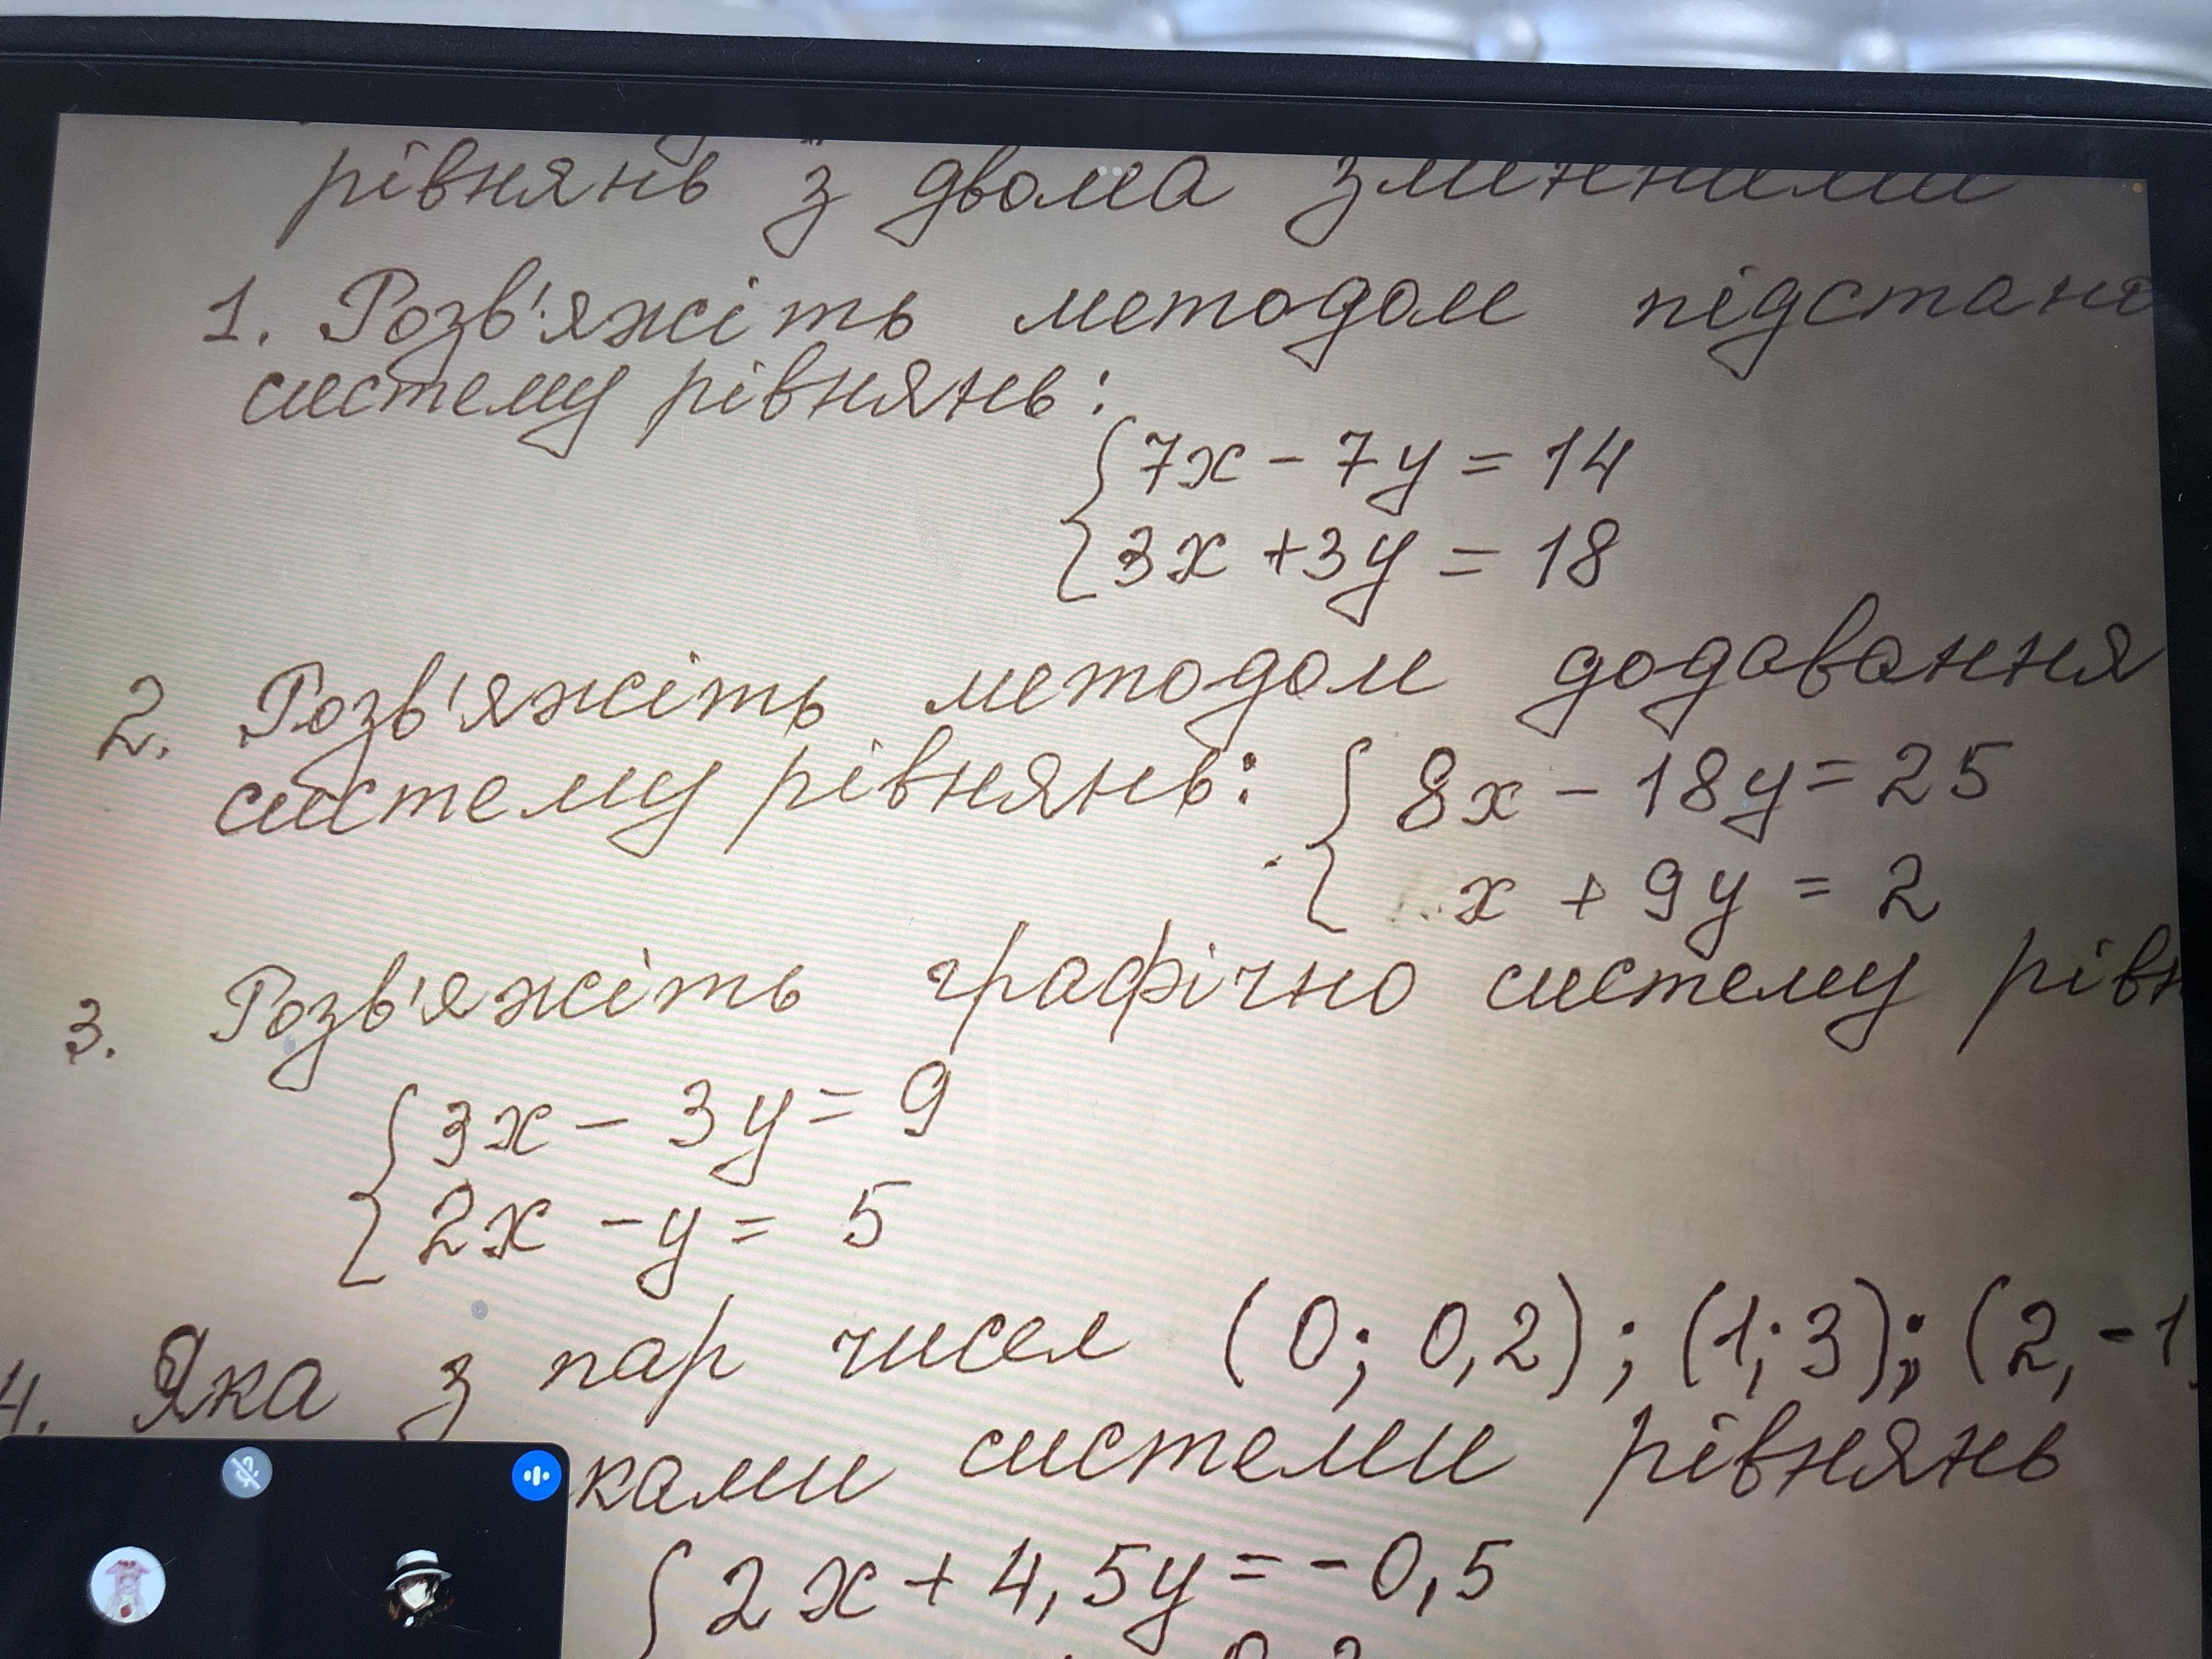 рівнянь з двома змінними
1. Розв'яжіть методом підстано
систему рівнянь:
{7x - 7y = 14
3x + 3y = 18
2. Розв'яжіть методом додавання
систему рівнянь: {8x - 18y = 25
x + 9y = 2
3. Розв'яжіть графічно систему рівн
{3x - 3y = 9
2x - y = 5
4. Яка з пар чисел (0; 0,2); (1; 3); (2, -1)
ками системи рівнянь
{2x + 4,5y = -0,5